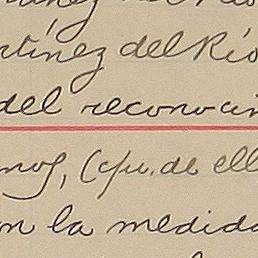 rtínez del Río
del reconocim
mos, (cpu. de ell
n la medida